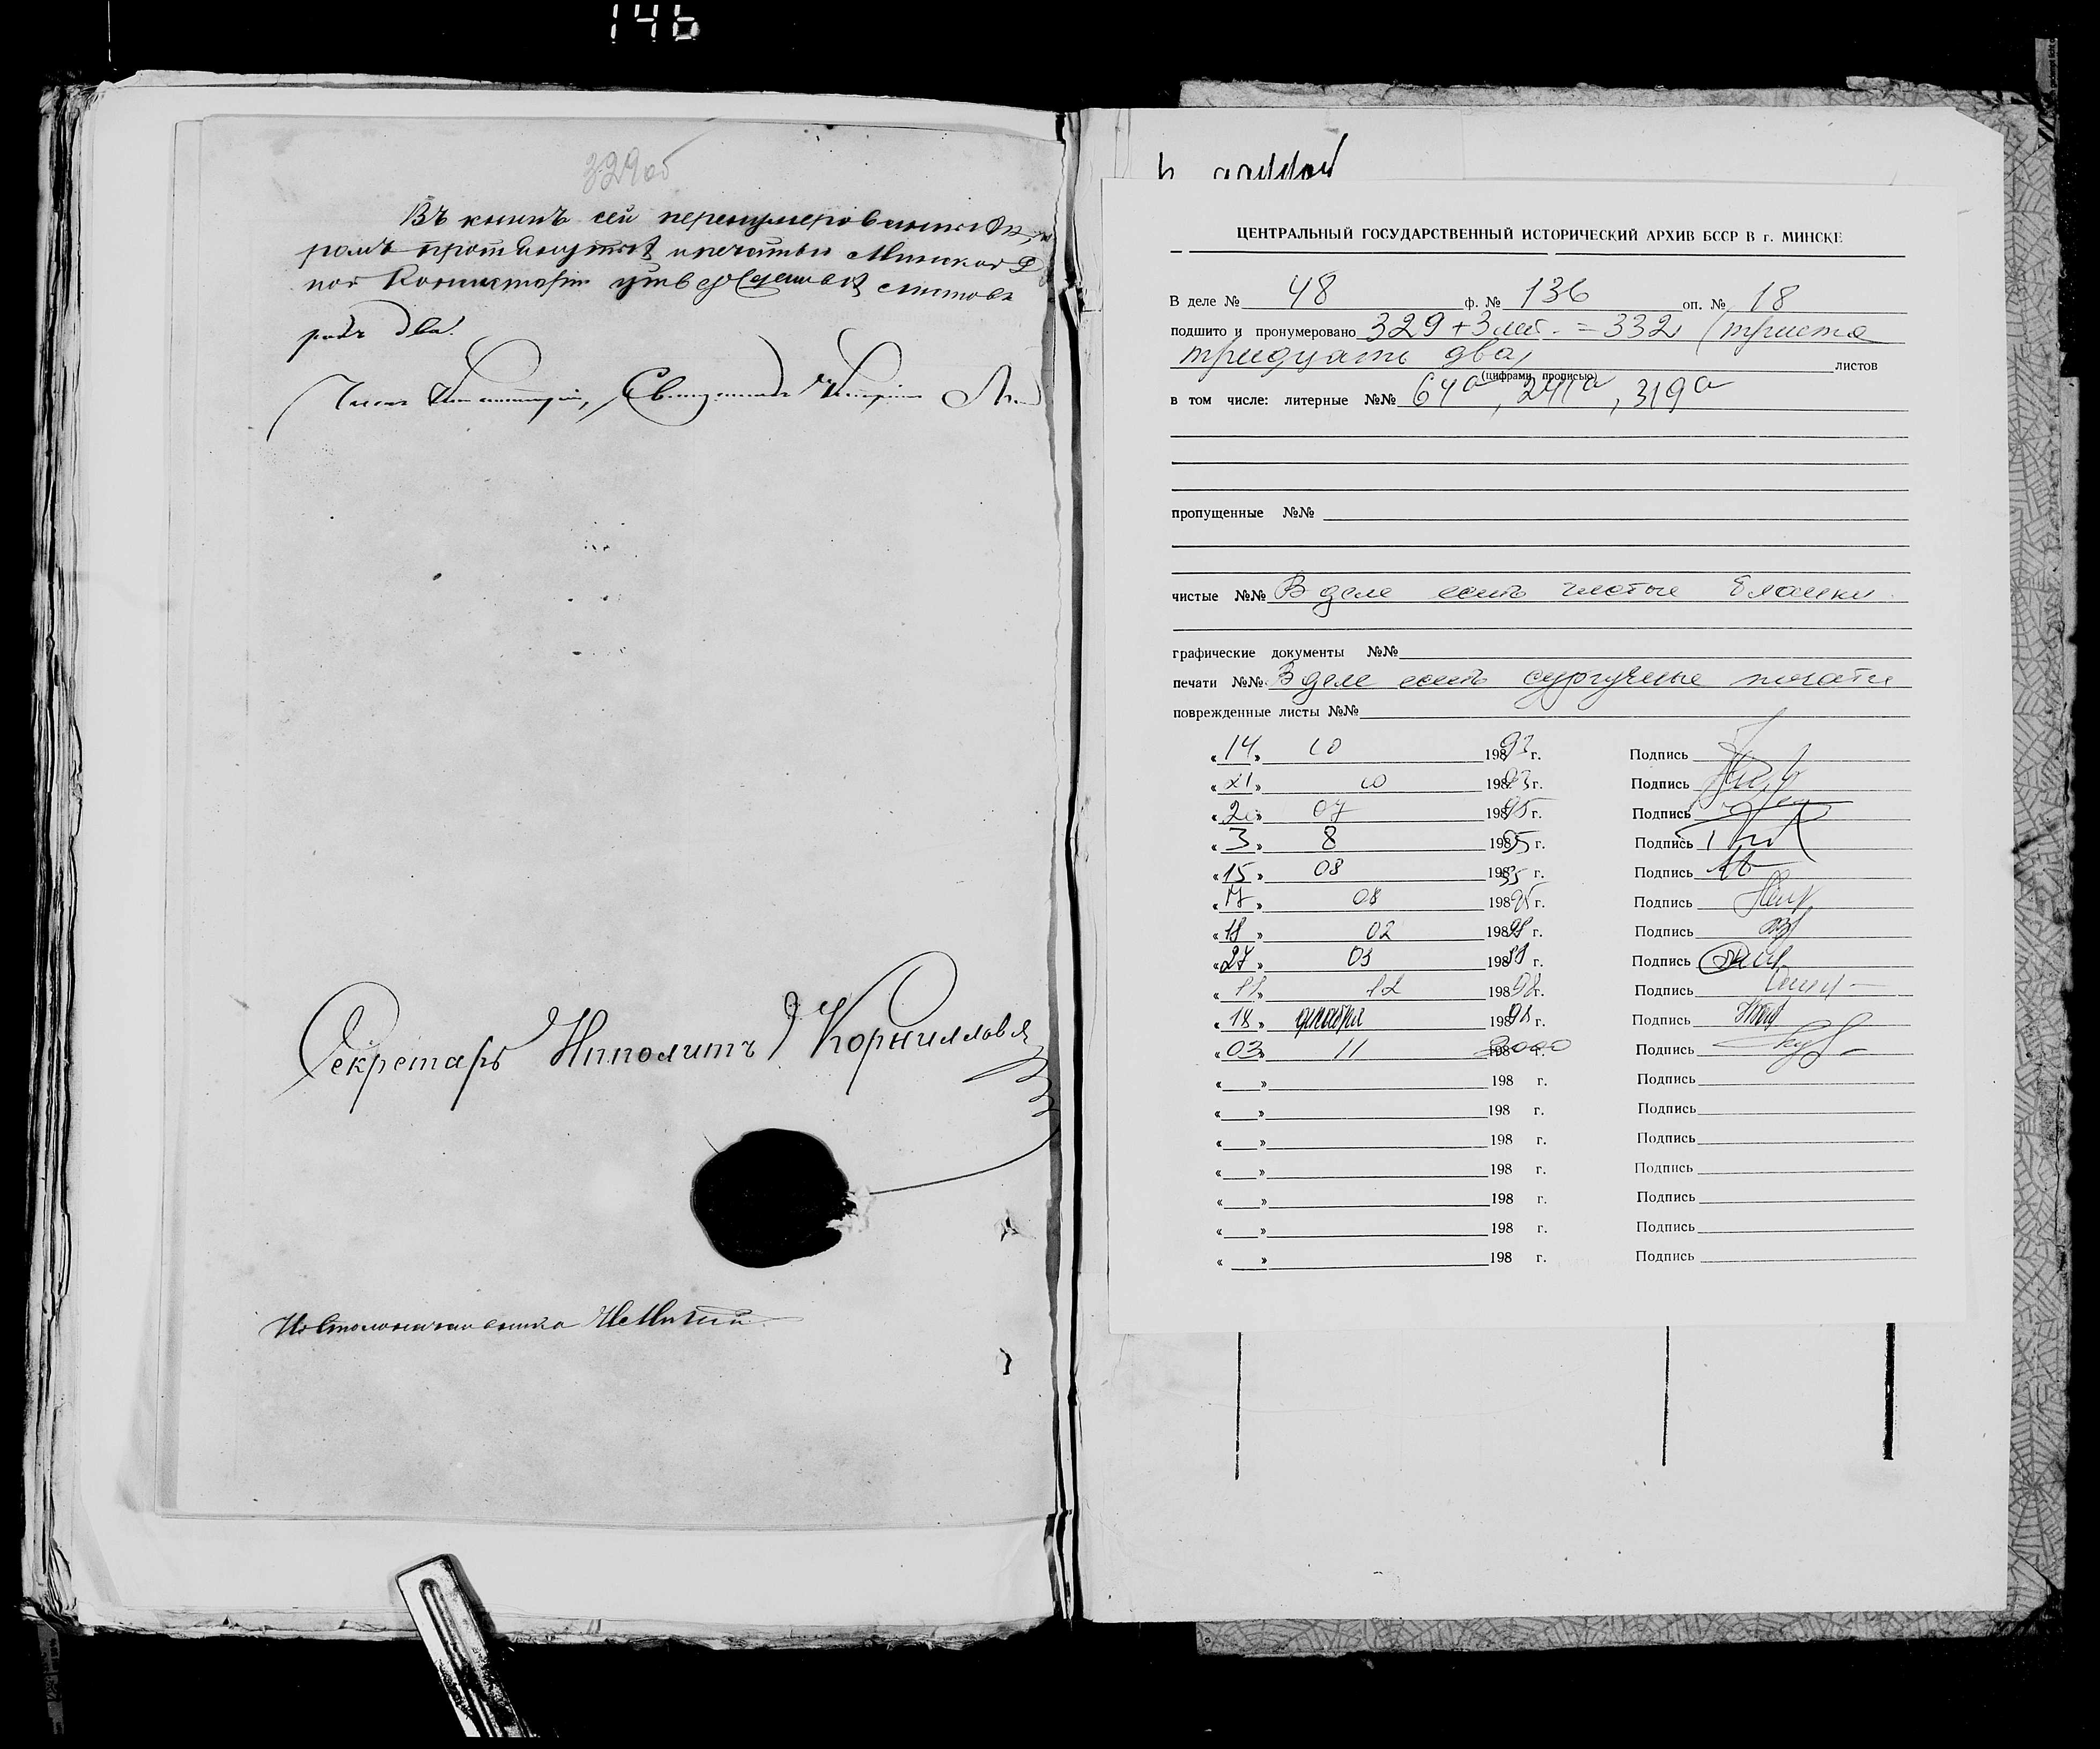 146
329об
Въ книгѣ сей перенумерованныхъ
рамъ протянутыхъ и печатью Минской Д
ной Консисторіи утвержденныхъ листовъ
родъ два.
Членъ Консисторіи, Священникъ
Секретарь Ипполитъ Корниловъ
Столоначальника
ЦЕНТРАЛЬНЫЙ ГОСУДАРСТВЕННЫЙ ИСТОРИЧЕСКИЙ АРХИВ БССР В г. МИНСКЕ
В деле № 48 ф. № 136 оп. № 18
подшито и пронумеровано 329 + 3 лит. = 332 (триста
тридцать два) листов
(цифрами, прописью)
в том числе: литерные №№ 64а, 241а, 319а
пропущенные №№
чистые №№ В деле есть чистые бланки
графические документы №№
печати №№ В деле есть сургучные печати
поврежденные листы №№
«14» 10 19893 г. Подпись
«21» 10 19893 г. Подпись
«20» 07 19895 г. Подпись
«3» 8 19895 г. Подпись
«15» 08 19895 г. Подпись
«17» 08 19895 г. Подпись
«18» 02 19898 г. Подпись
«27» 03 198 г. Подпись
«11» 12 19898 г. Подпись
«18» декабря 19898 г. Подпись
«03» 11 2000 г. Подпись
«  » 198 г. Подпись
«  » 198 г. Подпись
«  » 198 г. Подпись
«  » 198 г. Подпись
«  » 198 г. Подпись
«  » 198 г. Подпись
«  » 198 г. Подпись